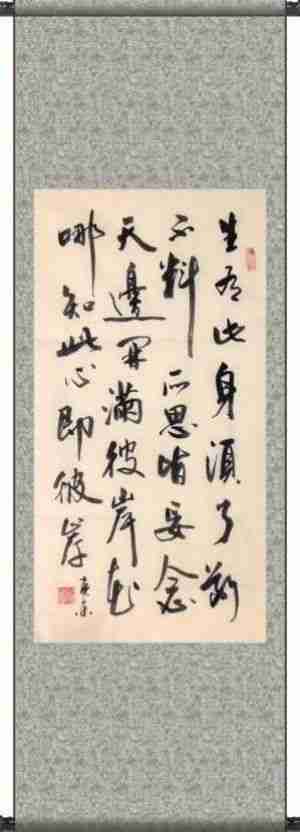 生为此身須了斷
不料所思皆妄念
天邊开滿彼岸花
哪知此心即彼岸